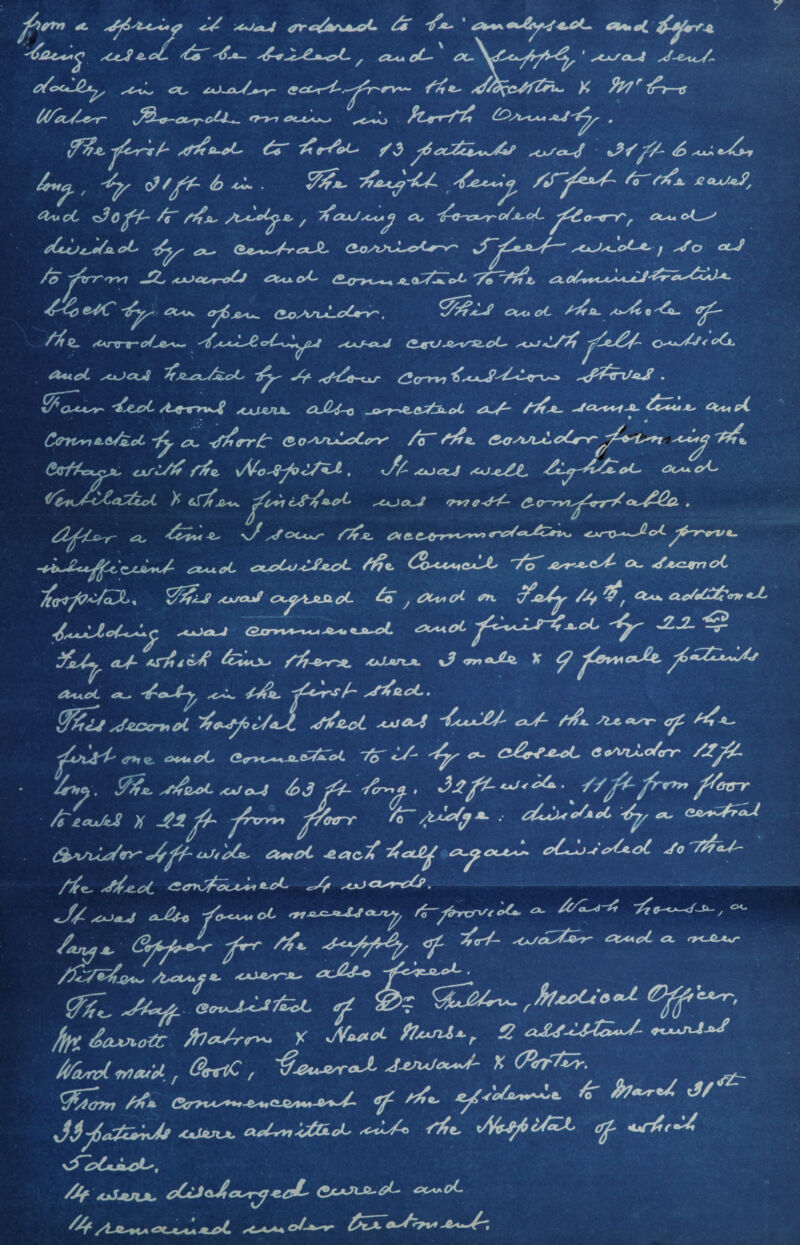 from a spring it was ordered to be analysed and before
being used to be boiled, and a supply was sent
daily in a water cart from the Stockton & M'bro
Water Boards main in North Ormesby.
The first shed to hold 13 patients was 31 ft 6 inches
long, by 31 ft 6 in. The height being 15 feet to the eaves,
and 30 ft to the ridge, having a boarded floor, and
devided by a central corridor 5 feet wide, so as
to form 2 wards and connected to the administrative
block by an open corridor. This and the whole of
the wooden buildings was covered with felt outside
and was heated by 4 slow combustion stoves.
Four bed rooms were also erected at the same time and
connected by a short corridor to the corridor forming the
Cottage with the Hospital. It was well lighted and
Ventilated & when finished was most comfortable.
After a time I saw the accommodation would prove
insufficient and advised the Council to erect a second
hospital. This was agreed to, and on Feby 14th, an additional
building was commenced and finished by 22nd
Feby at which time there were 3 male & 9 female patients
and a baby in the first shed.
This second hospital shed was built at the rear of the
first one and connected to it by a closed corridor 12 ft
long. The shed was 63 ft long, 32 ft wide. 11 ft from floor
to eaves & 22 ft from floor to ridge: divided by a central
Corridor 4 ft wide and each half again divided so that
the shed contained 4 wards.
It was also found necessary to provide a Wash house, a
large Copper for the supply of hot water and a new
Kitchen range were also fixed.
The Staff consisted of Dr Fulton, Medical Officer,
Mrs Carrott Matron & Head Nurse, 2 assistant nurses
Ward maid, Cook, General servant & Porter.
From the commencement of the epidemic to March 31st
33 patients were admitted into the Hospital of which
5 died.
14 were discharged cured and
14 remained under treatment.